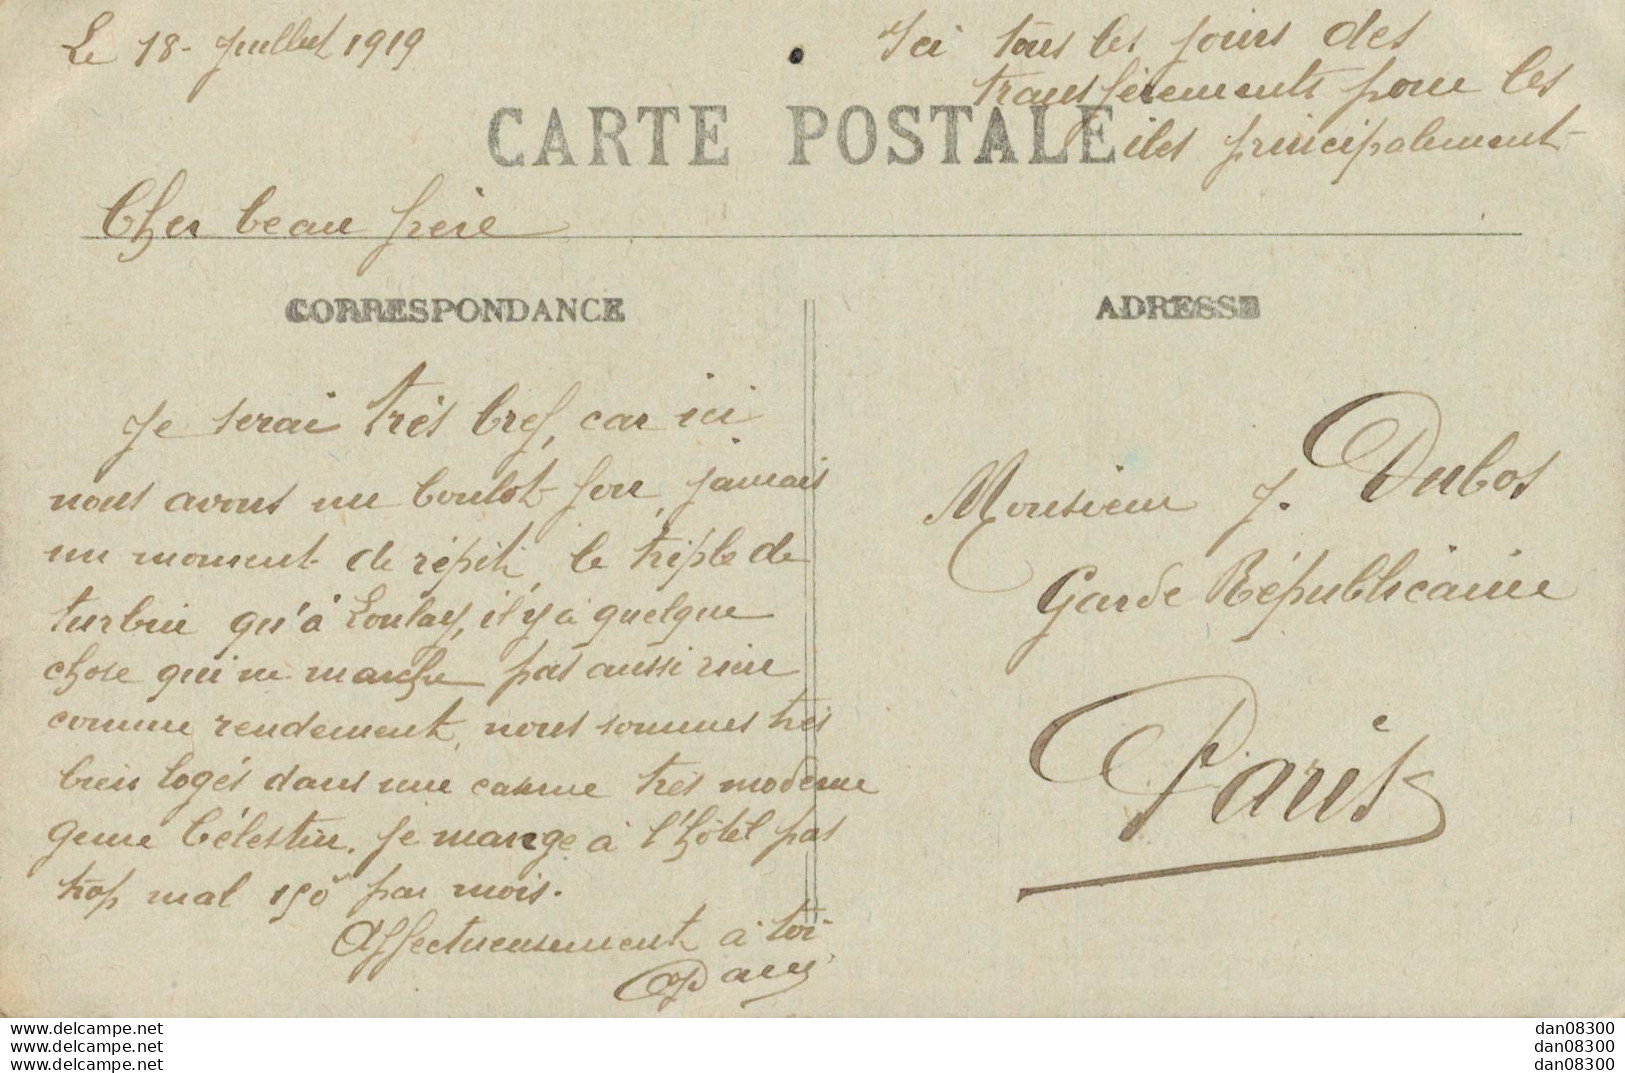 Le 18 - Juillet 1919
Ici tous les jours des
transfèrements pour les
iles principalement -
CARTE POSTALE
Cher beau frère
CORRESPONDANCE
ADRESSE
Je serai très bref, car ici
nous avons un boulot fou, jamais
un moment de répit, le triple de
turbin qu'à Loulay, il y a quelque
chose qui ne marche pas aussi rien
comme rendement, nous sommes très
bien logés dans une caserne très moderne
genre Célestin. Je mange à l'hôtel pas
trop mal 150 par mois.
Affectueusement à toi
Monsieur J. Dubos
Garde Républicaine
Paris
www.delcampe.net
www.delcampe.net
www.delcampe.net
dan08300
dan08300
dan08300